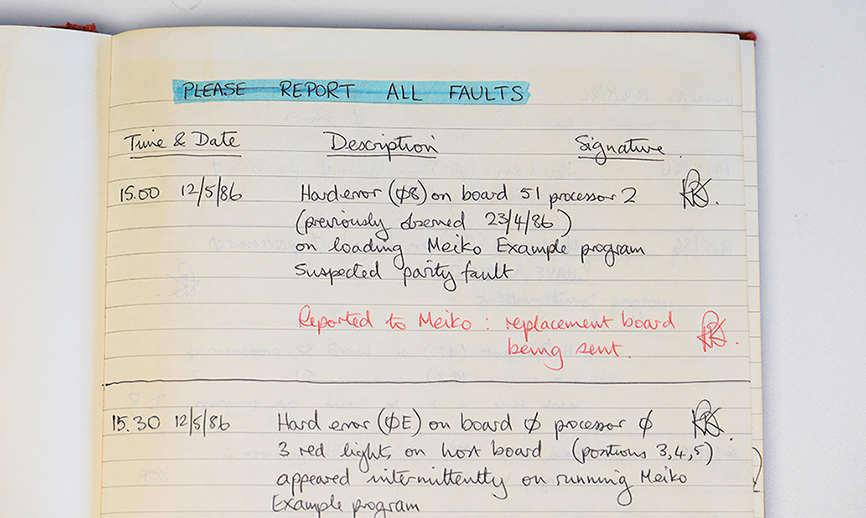 PLEASE REPORT ALL FAULTS
Time & Date Description Signature.
15.00 12/5/86 Hard error (Ø8) on board 51 processor 2
(previously observed 23/4/86)
on loading Meiko Example program
Suspected parity fault
Reported to Meiko : replacement board
being sent.
15.30 12/5/86 Hard error (ØE) on board Ø processor Ø
3 red lights on host board (positions 3,4,5)
appeared intermittently on running Meiko
Example program